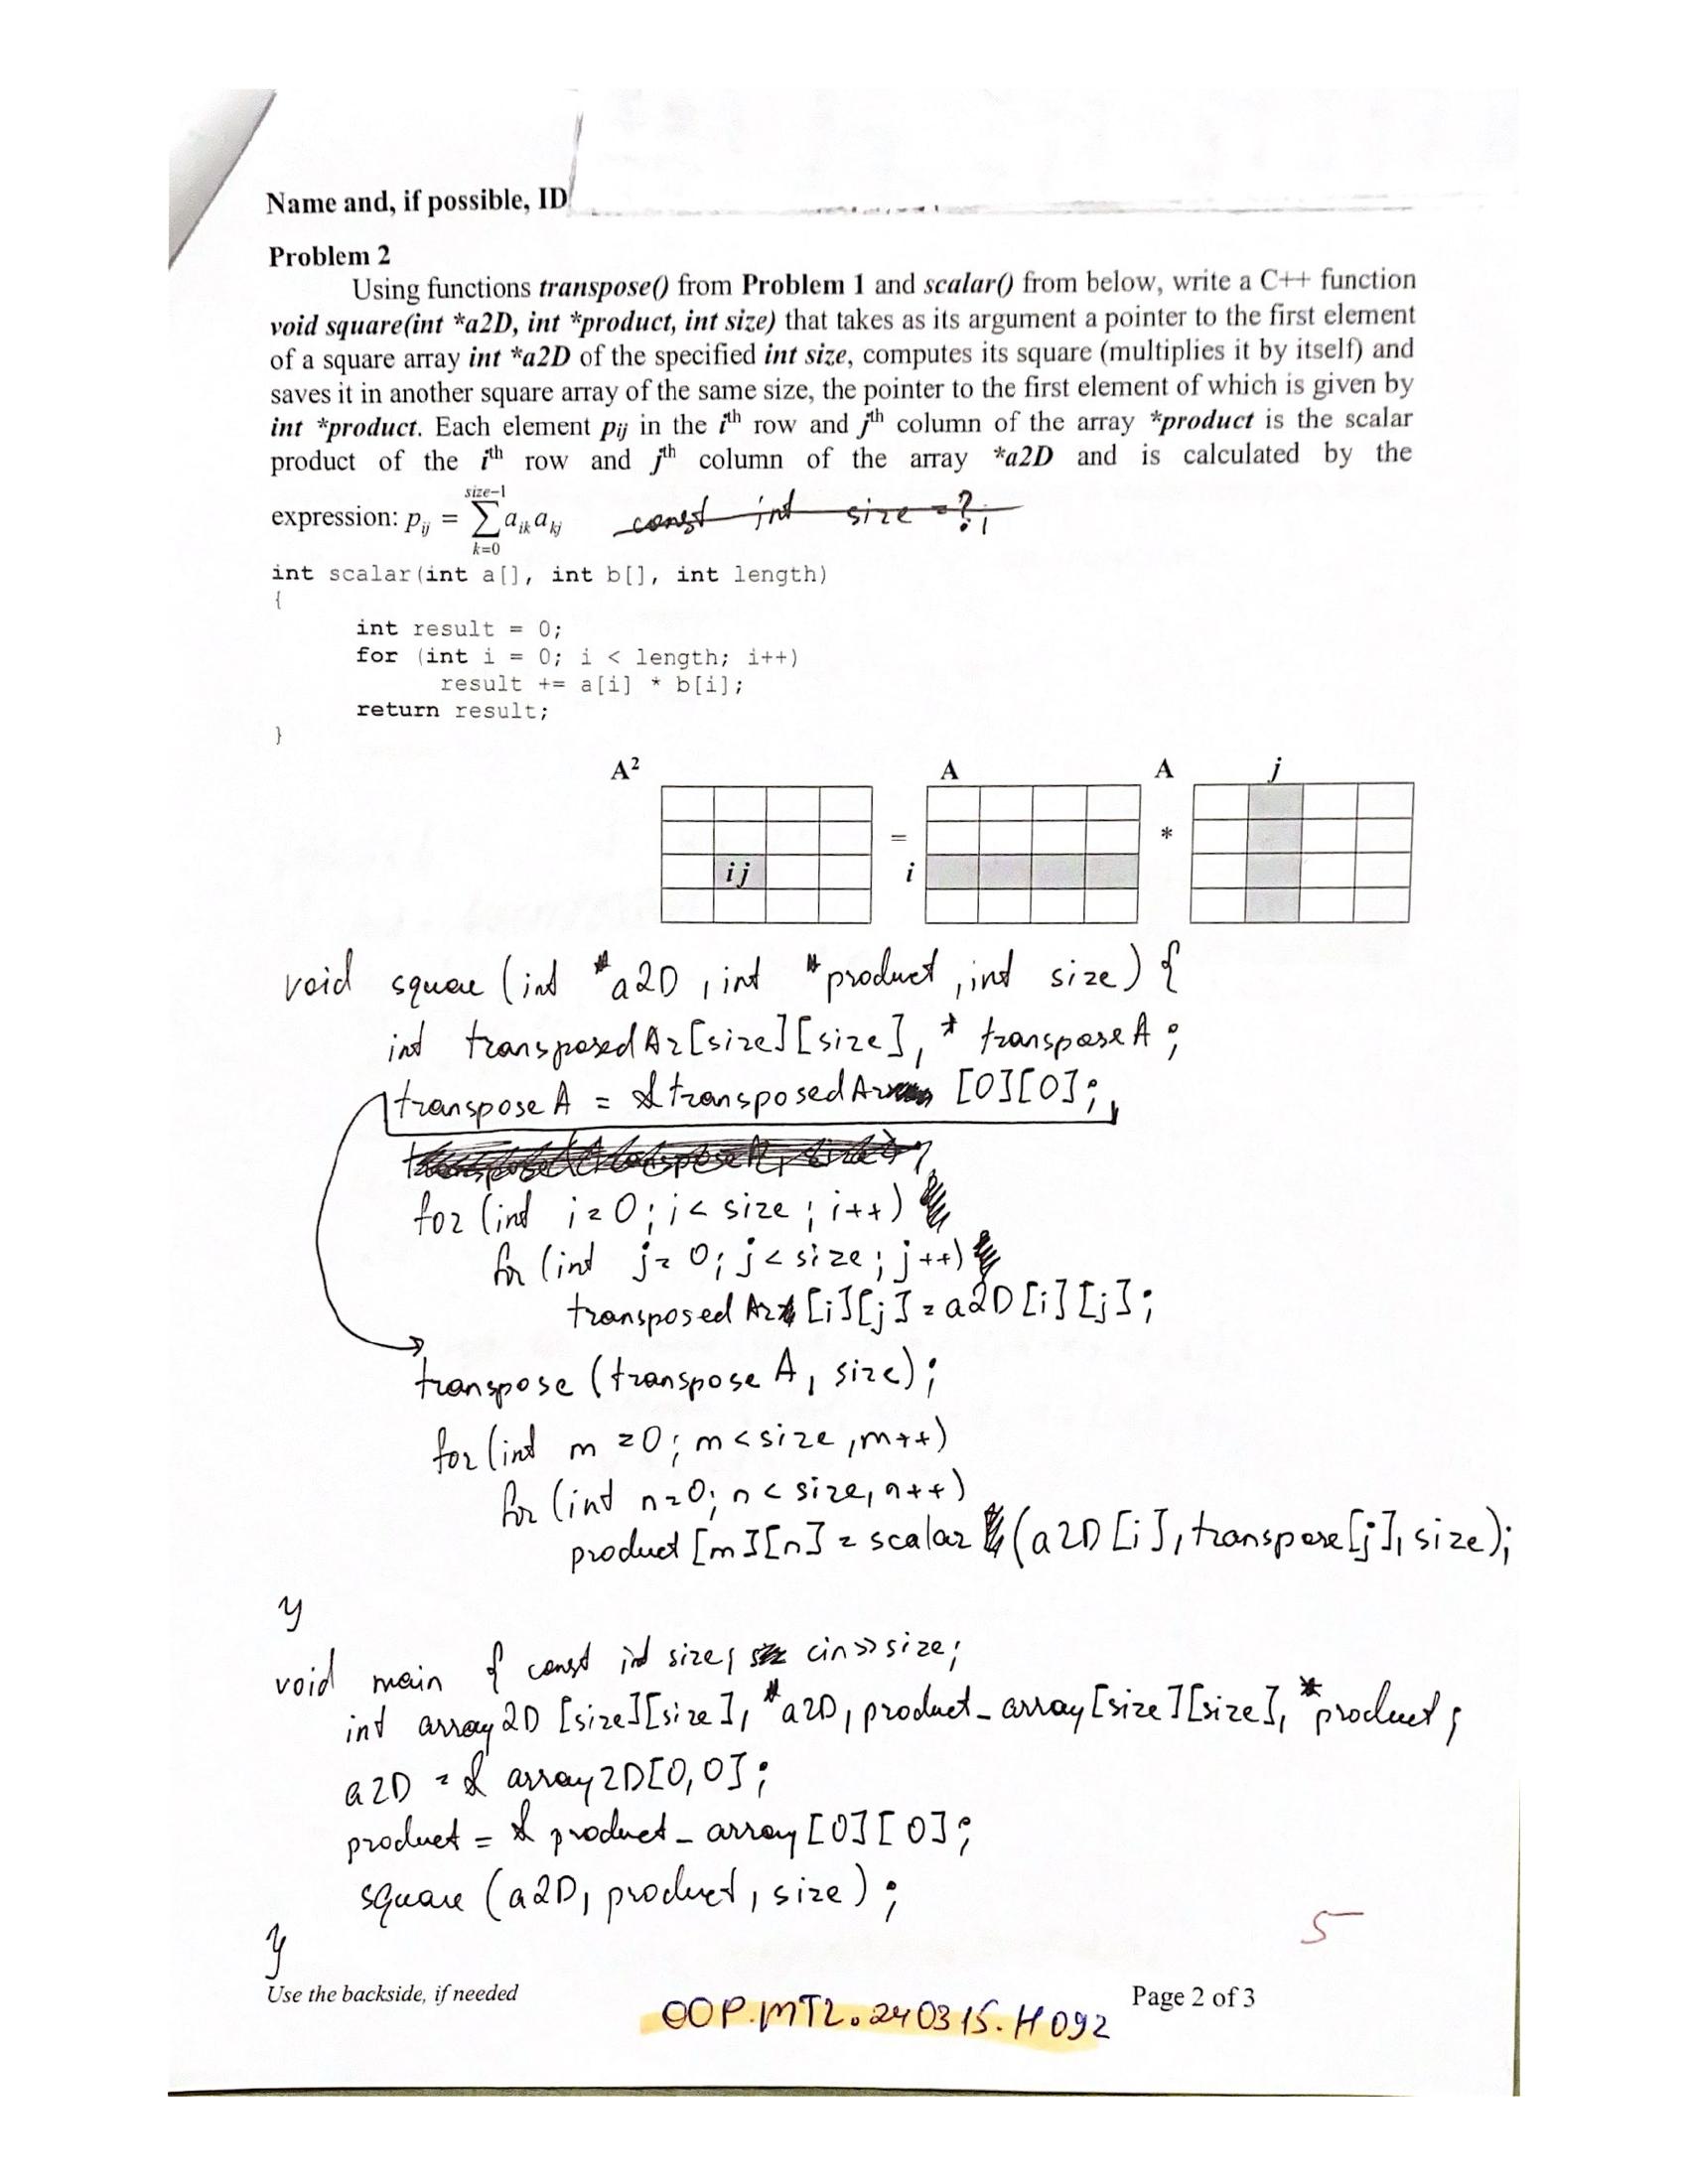 Name and, if possible, ID
Problem 2
Using functions transpose() from Problem 1 and scalar() from below, write a C++ function
void square(int *a2D, int *product, int size) that takes as its argument a pointer to the first element
of a square array int *a2D of the specified int size, computes its square (multiplies it by itself) and
saves it in another square array of the same size, the pointer to the first element of which is given by
int *product. Each element pij in the ith row and jth column of the array *product is the scalar
product of the ith row and jth column of the array *a2D and is calculated by the
expression: pij = size-1 ∑ k=0 aik akj const int size = ?;
int scalar(int a[], int b[], int length)
{
int result = 0;
for (int i = 0; i < length; i++)
result += a[i] * b[i];
return result;
}
A² A A j
= *
i j i
void square (int *a2D, int *product, int size) {
int transposedAr[size][size], * transposeA;
transposeA = &transposedAr [0][0];
for (int i=0; i< size; i++)
for (int j=0; j<size; j++)
transposed Ar [i][j] = a2D[i][j];
transpose (transpose A, size);
for (int m=0; m<size, m++)
for (int n=0; n< size, n++)
product [m][n] = scalar (a2D[i], transpose[j], size);
}
void main { const int size; cin>>size;
int array2D [size][size], *a2D, product_array[size][size], *product;
a2D = & array2D[0,0];
product = & product_array[0][0];
square (a2D, product, size);
}
5
Use the backside, if needed
Page 2 of 3
OOP.MT2.240315.H092